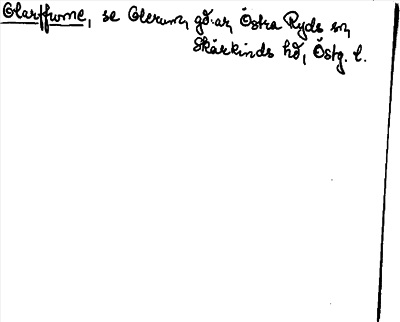 Glarffwme, se Glerum, gd:ar, Östra Ryds sn,
Skärkinds hd, Östg. l.